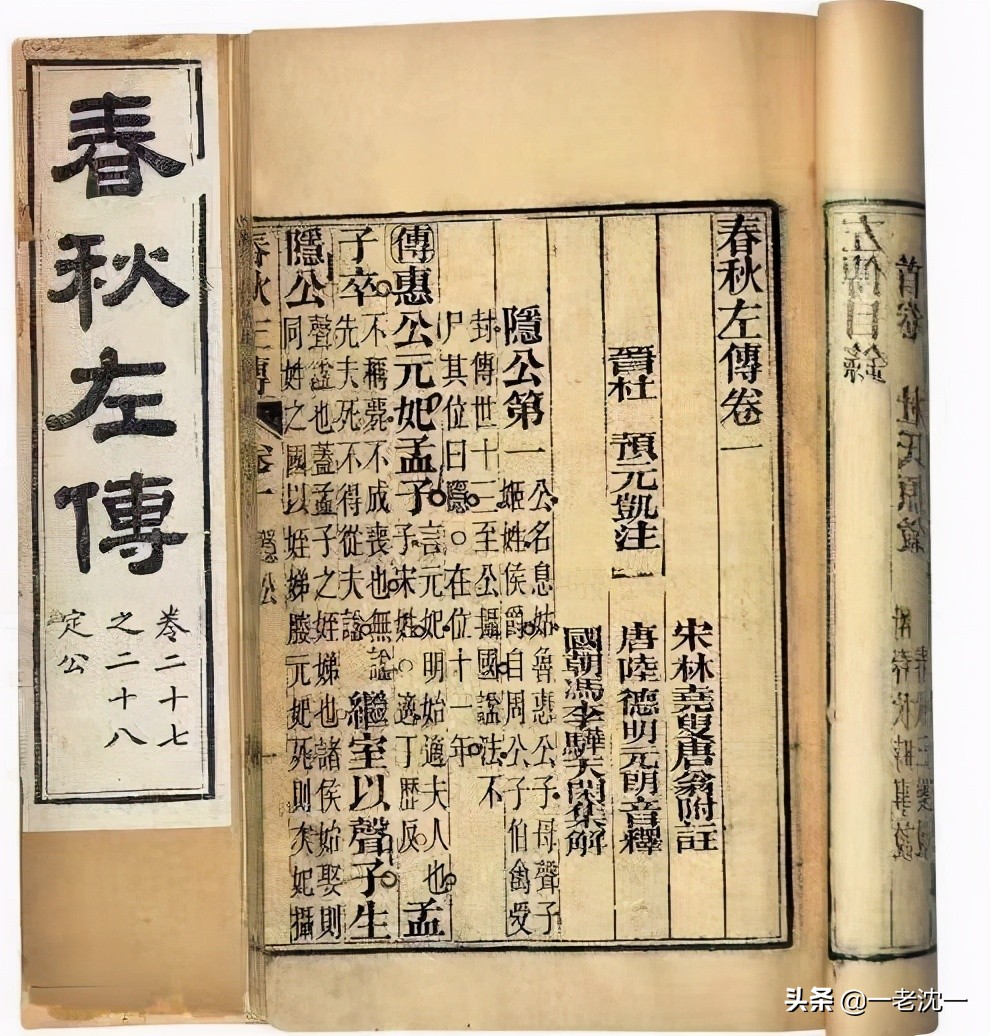 春秋左傳
卷二十七
之二十八
定公
春秋左傳卷一
宋林堯叟唐翁附註
晉杜 預元凱注
唐陸德明元朗音釋
國朝馮李驊天閑集解
隱公第一
公名息姑魯惠公子母聲子
姬姓侯爵自周公子伯禽受
封傳世十三至公攝國諡法不
尸其位曰隱○在位十一年
傳惠公元妃孟子
言元妃明始適夫人也
子宋姓○適丁歷反
孟
子卒
不稱薨不成喪也無諡
先夫死不得從夫諡
繼室以聲子生
隱公
聲諡也蓋孟子之姪娣也諸侯始娶則
同姓之國以姪娣媵元妃死則次妃攝
卷一
隱公
首卷
左傳目錄
头条 @一老沈一